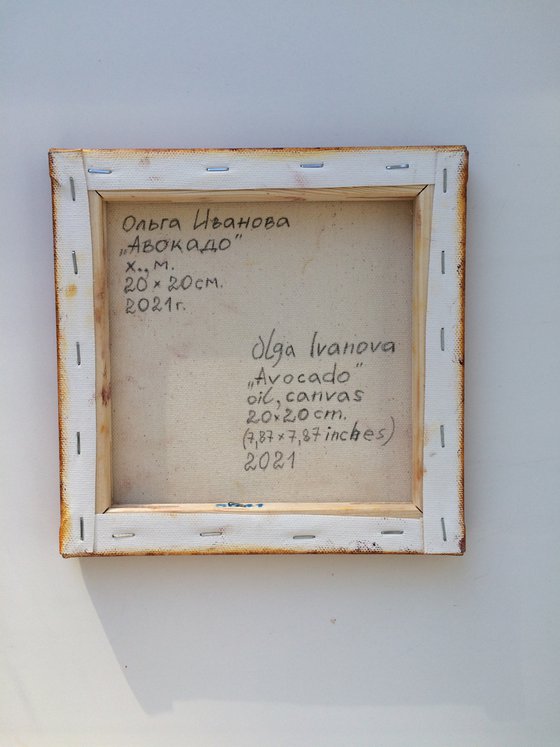 Ольга Иванова
„Авокадо"
х., м.
20 × 20 см.
2021 г.
Olga Ivanova
„Avocado"
oil, canvas
20 × 20 cm.
(7,87 × 7,87 inches)
2021